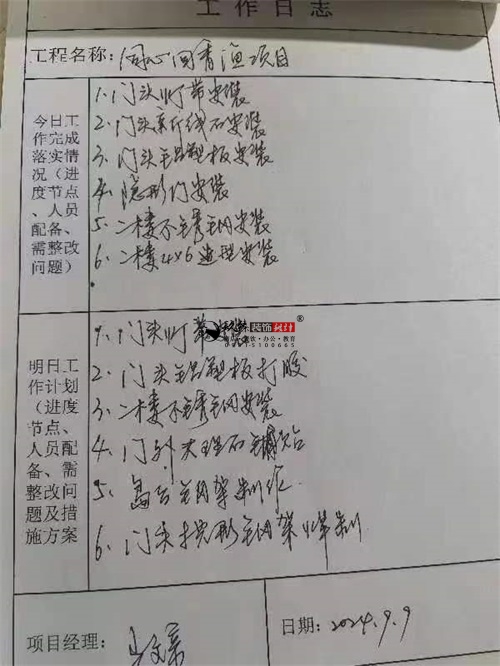 工作日志
工程名称：同心回香渔项目
今日工作完成落实情况（进度节点、人员配备、需整改问题）
1. 门头灯带安装
2. 门头亲行线石安装
3. 门头铝塑板安装
4. 隐形门安装
5. 二楼不锈钢安装
6. 二楼4x6造型安装
明日工作计划（进度节点、人员配备、需整改问题及措施方案
1. 门头灯安装
2. 门头铝塑板打胶
3. 二楼不锈钢安装
4. 门外大理石铺贴
5. 岛台钢架制作
6. 门头拱形钢架焊制
装饰设计®
办公·教育
项目经理：
日期：2024.9.9